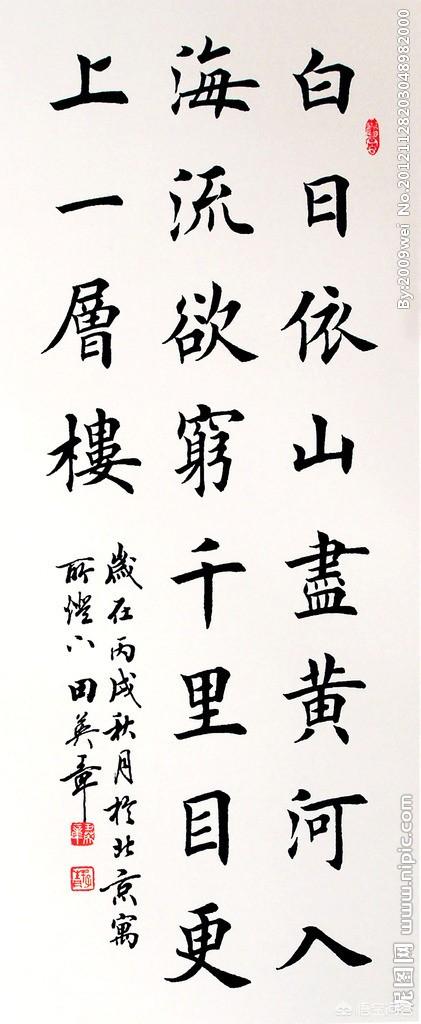 白日依山盡黄河入
海流欲窮千里目更
上一層樓
歲在丙戌秋月於北京寓
所燈下田英章
By:2009wei No.20121128203048982000
昵图网 www.nipic.com
悟空问答